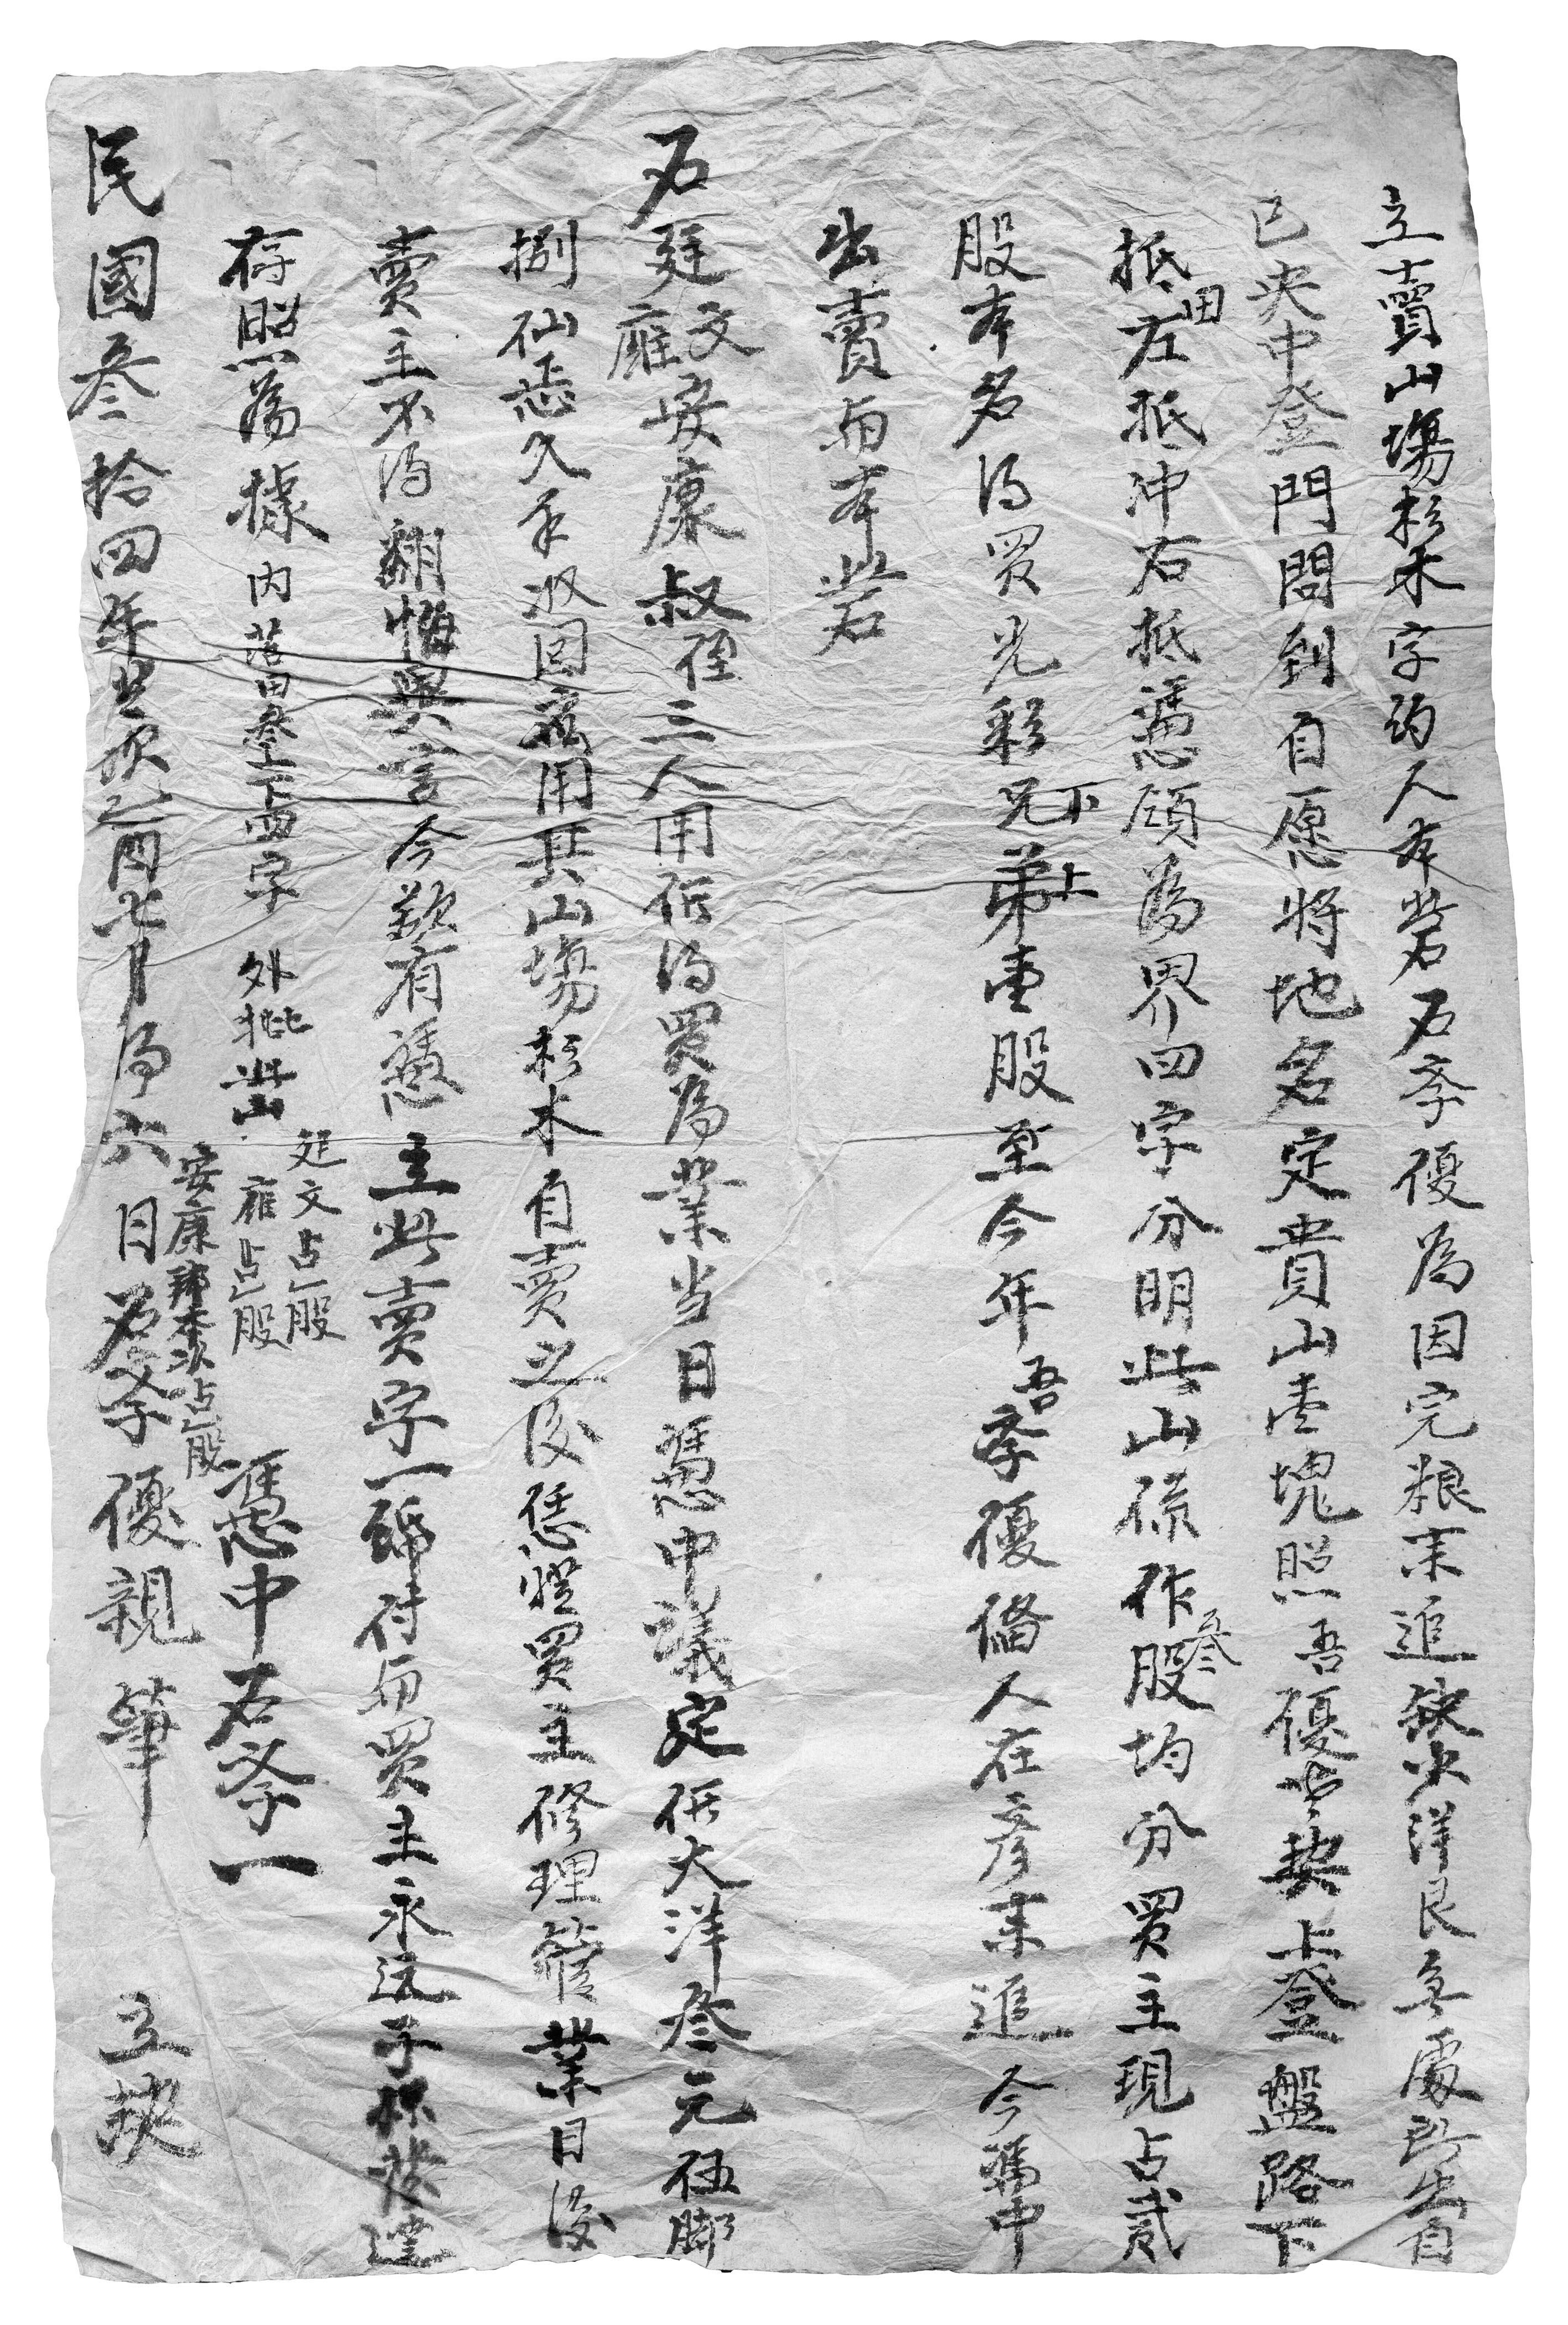 立賣山塲杉木字約人本砦石孝優為因完粮未追缺少洋艮無處所出自
己央中登門問到自愿将地名定貴山壹塊照吾優老契上登盤路下
抵田左抵冲右抵憑領為界四字分明此山係作叁股均分買主現占貳
股本名得買光彩兄下弟上壹股至今年吾孝優俻人在彦未追今憑中
出賣與本砦
石廷文雍安康叔侄三人用價得買為業当日憑中議定價大洋叁元伍脚
捌仙恁久手收囬應用其山塲杉木自賣之後恁從買主修理管業日後
賣主不得翻悔異言今欲有憑立此賣字一紙付與買主永远子孫發達
存照為據 内落田叁上下四字 外批此山
廷文占一股
雍占一股
安康 占一股
憑中石孝一
民國叁拾四年 七月 六日石孝優親筆 立契